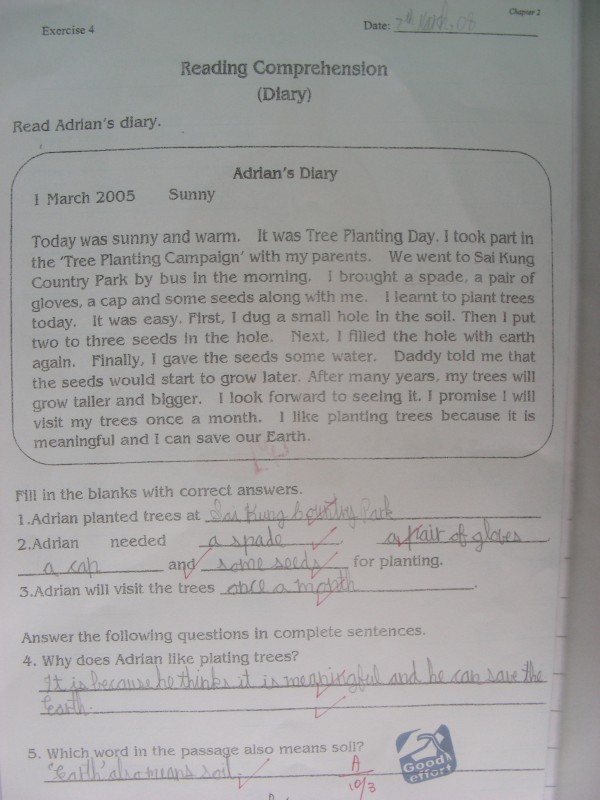 Chapter 2
Exercise 4
Date: 7th March. 08
Reading Comprehension
(Diary)
Read Adrian's diary.
Adrian's Diary
1 March 2005 Sunny
Today was sunny and warm. It was Tree Planting Day. I took part in
the 'Tree Planting Campaign' with my parents. We went to Sai Kung
Country Park by bus in the morning. I brought a spade, a pair of
gloves, a cap and some seeds along with me. I learnt to plant trees
today. It was easy. First, I dug a small hole in the soil. Then I put
two to three seeds in the hole. Next, I filled the hole with earth
again. Finally, I gave the seeds some water. Daddy told me that
the seeds would start to grow later. After many years, my trees will
grow taller and bigger. I look forward to seeing it. I promise I will
visit my trees once a month. I like planting trees because it is
meaningful and I can save our Earth.
Fill in the blanks with correct answers.
1.Adrian planted trees at Sai Kung Country Park
2.Adrian needed a spade a pair of gloves
a cap and some seeds for planting.
3.Adrian will visit the trees once a month.
Answer the following questions in complete sentences.
4. Why does Adrian like plating trees?
It is because he thinks it is meaningful and he can save the
Earth.
5. Which word in the passage also means soil?
'Earth' also means soil.
A
10/3
Good
effort